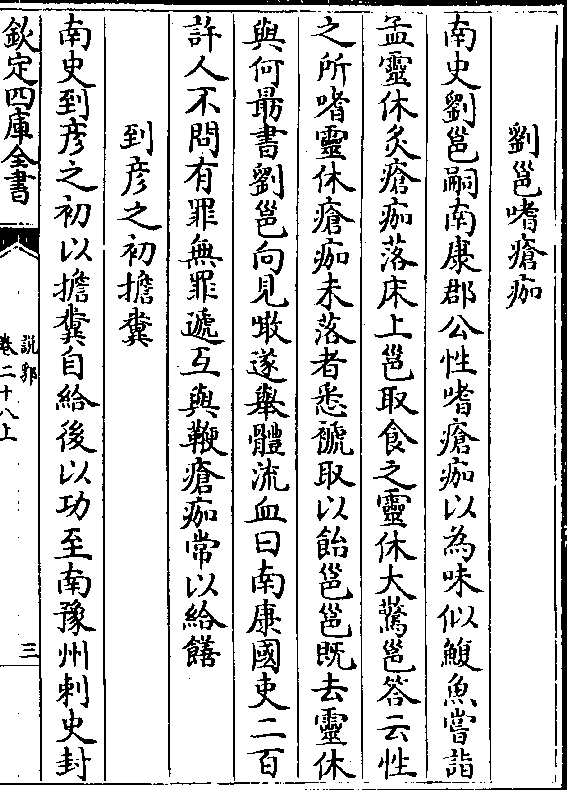 劉邕嗜瘡痂
南史劉邕嗣南康郡公性嗜瘡痂以為味似鰒魚嘗詣
孟靈休灸瘡痂落床上邕取食之靈休大驚邕答云性
之所嗜靈休瘡痂未落者悉褫取以飴邕邕既去靈休
與何勗書劉邕向見噉遂舉體流血曰南康國吏二百
許人不問有罪無罪遞互與鞭瘡痂常以給饍
到彦之初擔糞
南史到彦之初以擔糞自給後以功至南豫州刺史封
欽定四庫全書
說郛
卷二十八上
三